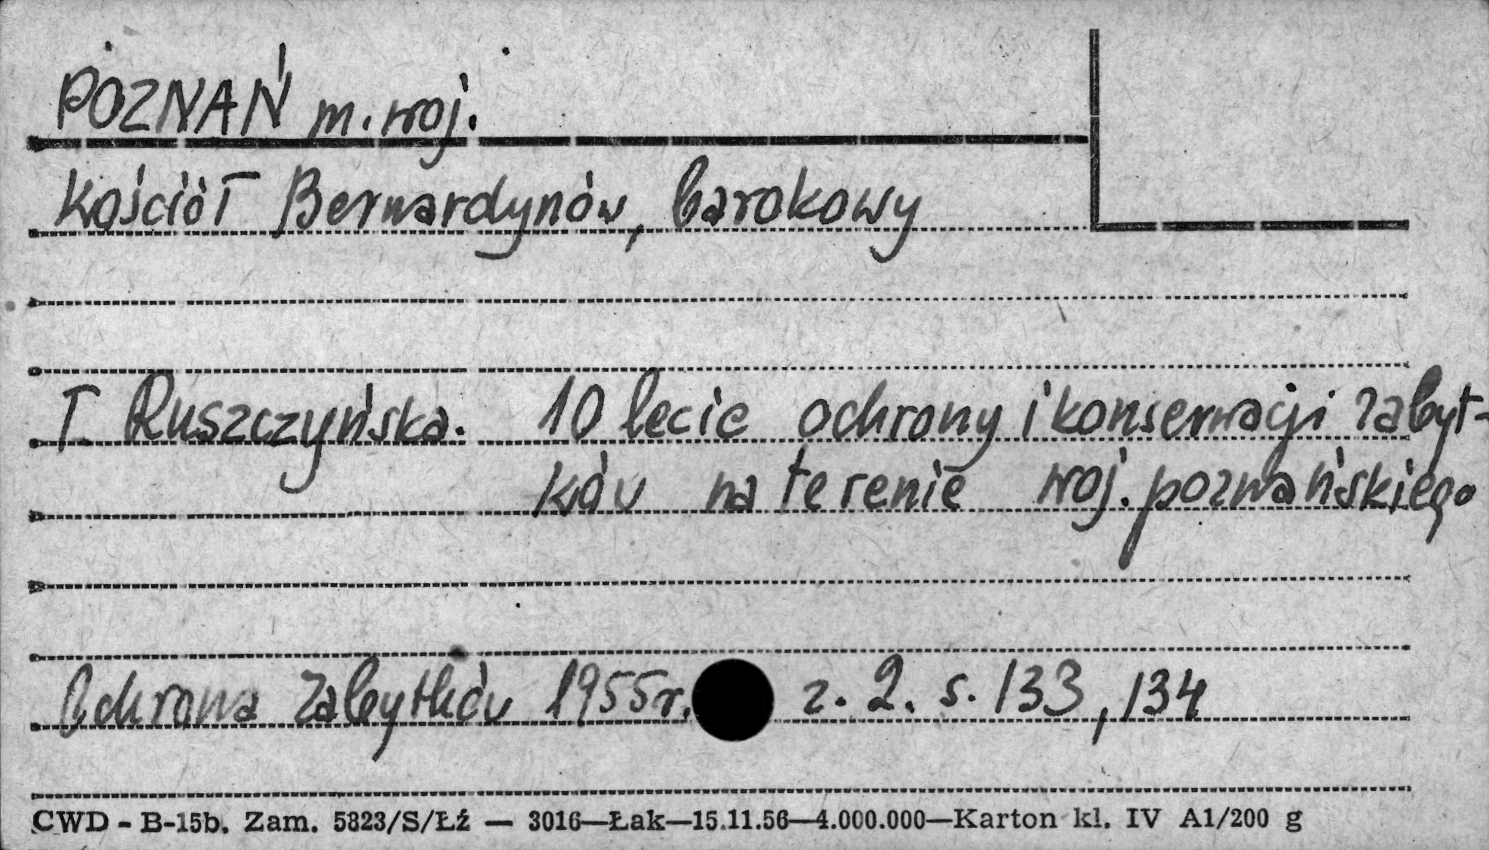 POZNAŃ m. woj.
Kościół Bernardynów, barokowy
T. Ruszczyńska. 10 lecie ochrony i konserwacji zabyt-
ków na terenie woj. poznańskiego
Ochrona Zabytków 1955 r. z. 2. s. 133, 134
CWD - B-15b. Zam. 5823/S/Łź — 3016—Łak—15.11.56—4.000.000—Karton kl. IV A1/200 g